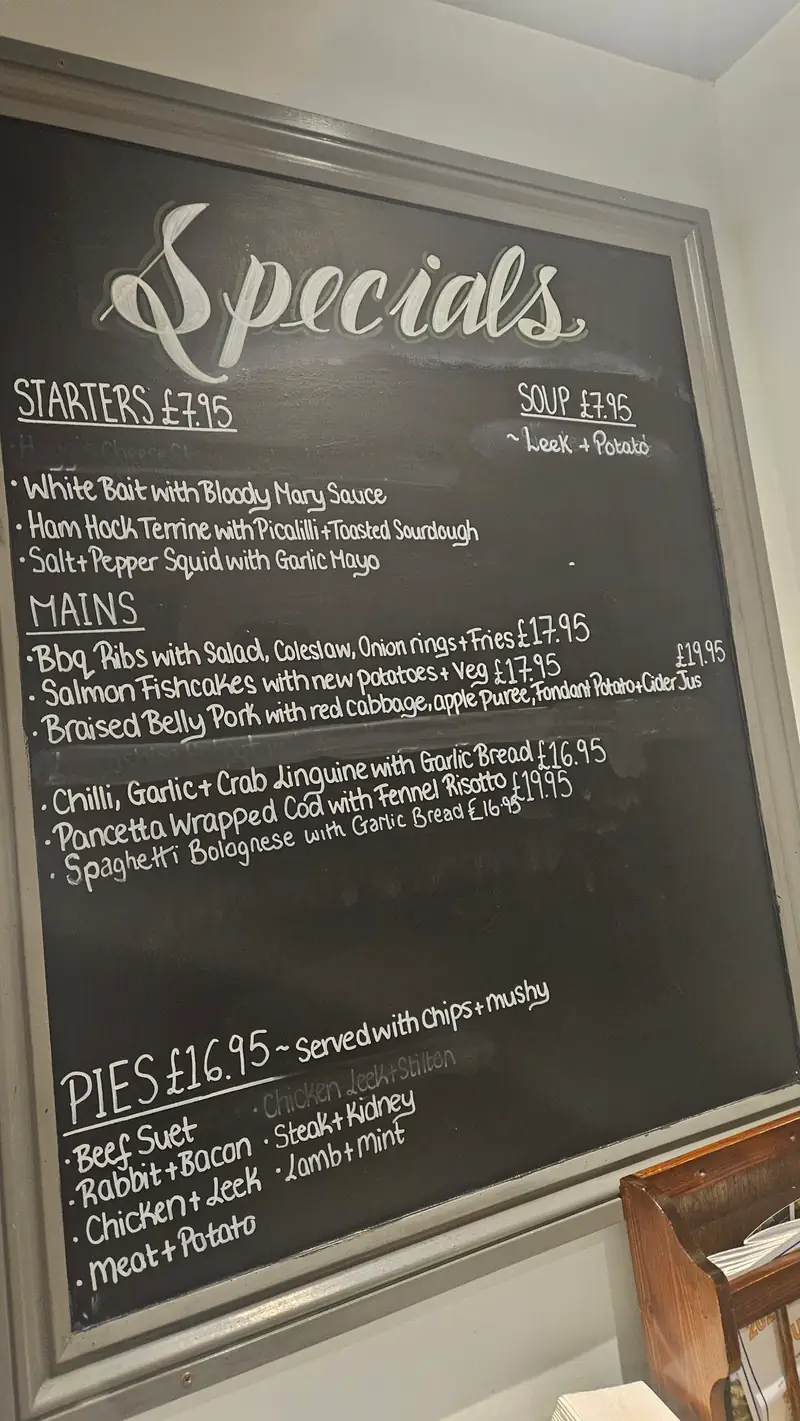 Specials
STARTERS £7.95
SOUP £7.95
~ Leek + Potato
• White Bait with Bloody Mary Sauce
• Ham Hock Terrine with Picalilli + Toasted Sourdough
• Salt + Pepper Squid with Garlic Mayo
MAINS
• Bbq Ribs with Salad, Coleslaw, Onion rings + Fries £17.95
• Salmon Fishcakes with new potatoes + Veg £17.95
• Braised Belly Pork with red cabbage, apple Puree, Fondant Potato + Cider Jus £19.95
• Chilli, Garlic + Crab Linguine with Garlic Bread £16.95
• Pancetta Wrapped Cod with Fennel Risotto £19.95
• Spaghetti Bolognese with Garlic Bread £16.95
PIES £16.95 ~ Served with chips + mushy
• Chicken Leek + Stilton
• Beef Suet
• Steak + Kidney
• Rabbit + Bacon
• Lamb + Mint
• Chicken + Leek
• Meat + Potato